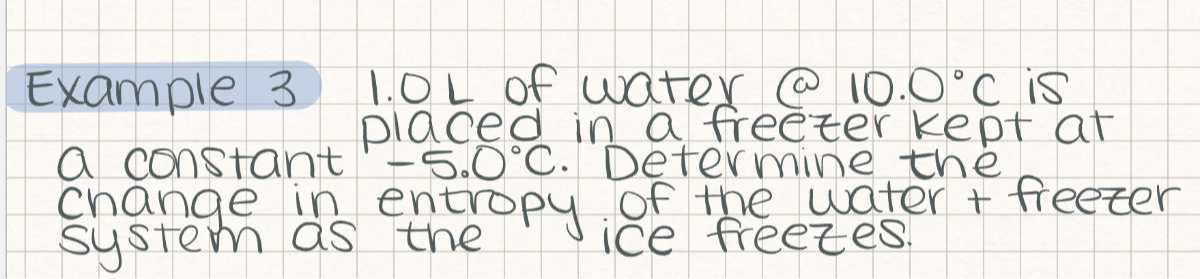 Example 3 1.0 L of water @ 10.0°C is
placed in a freezer kept at
a constant -5.0°C. Determine the
change in entropy of the water + freezer
system as the ice freezes.